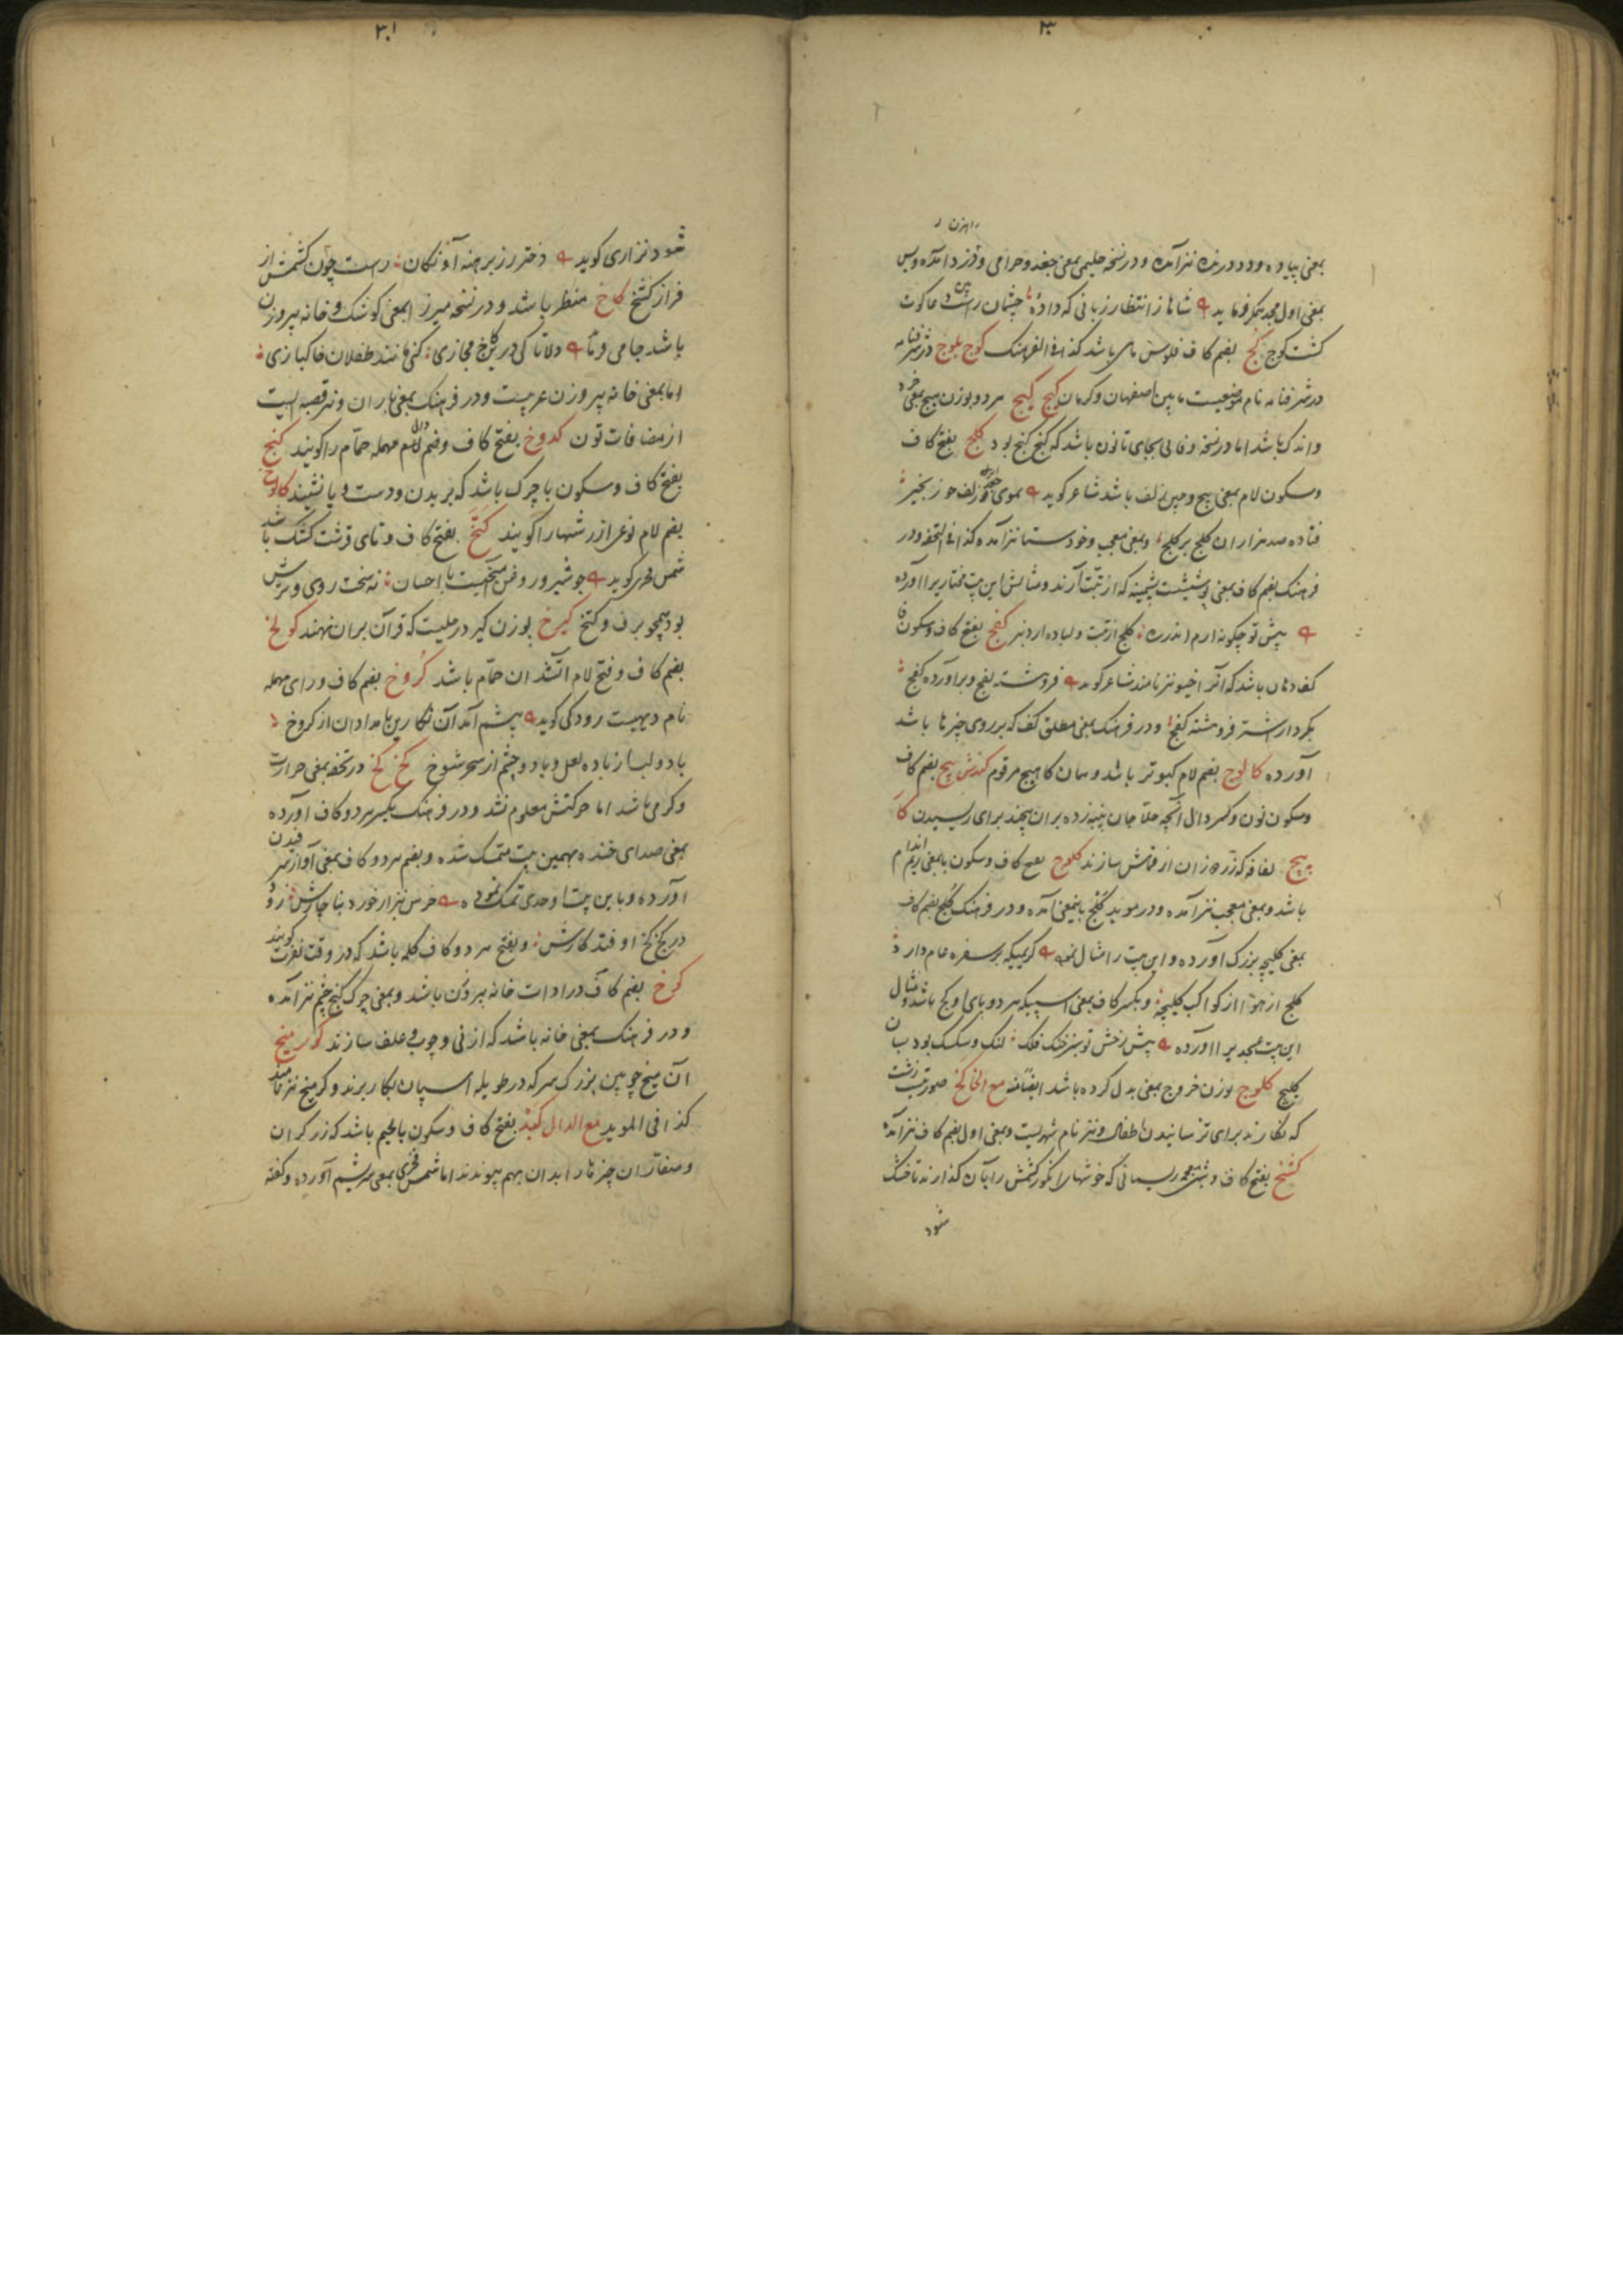 ۳۰
راهزن
بمعنی پیاده و درنده نیز آمده و در نسخه حلیمی بمعنی جغد و حرامی و دزد آمده و بس
بمعنی اول مجد همگر فرماید شاها ز انتظار زبانی که داده چشمان راست
کشت کوچ کج بضم کاف فلوس ماهی باشد کذا فی الفرهنک کوچ بلوچ در شرفنامه
در شرفنامه نام موضعیست مابین اصفهان و کرمان کیج کیج هر دو بوزن هیچ بمعنی خرد
و اندک باشد اما در نسخه وفایی بجای تا نون باشد که کنج کنج بود کلج بفتح کاف
و سکون لام بمعنی پیچ و چین زلف باشد شاعر کوید بموی زلف زنجیر
فتاده صد هزاران کلج بر کلج و بمعنی معجب و خودستا نیز آمده کذا فی التحفه و در
فرهنک بضم کاف بمعنی پوشیشت پشمینه که از تبت آرند و مثالش این بیت مختاریرا آورده
پیش تو چکونه آرم اندرت کلج از تبت و لباده از دنبر کفج بفتح کاف و سکون فا
کف دهان باشد که آنرا خیو نیز نامند شاعر کوید فروهشته لفج و برآورده کفج
بکردار شته فروهشته کفج و در فرهنک بمعنی مطلق کف که بر روی چیزها باشد
آورده کالوج بضم لام کبوتر باشد و همان کاهیج مرقوم کندش پیچ بضم کاف
و سکون نون و کسر دال آنچه حلاجان پنبه زده بران پیچند برای ریسیدن کا
پیچ لفافه که از قماش سازند کلوج بفتح کاف و سکون یا بمعنی اندام
باشد و بمعنی معجب نیز آمده و در موید کلج باینمعنی آمده و در فرهنک کلج بضم کاف
بمعنی کلیچه بزرک آورده و این بیت را مثال نموده کریمیکه بر سفره عام دارد
کلج از هوا از کواکب کلیچه و بکسر کاف بمعنی اسپیکه هر دو پای او کج باشد و مثال
این بیت مجد بیر را آورده پیش رخش تو سبز خنک فلک لنک و سکسک بود بسان
کلیج کلوج بوزن خروج بمعنی بدل کرده باشد ایضا منه مع الخا کخ صورت زشت
که نکارند برای ترسانیدن اطفال و نیز نام شهریست و بمعنی اول بضم کاف نیز آمده
کشخ بفتح کاف و شین معجمه ریسمانی که خوشهای انکور کشمش را بآن کذارند تا خشک
شود
۳۱
شود نزاری کوید دختر رز برهنه آونکان راست چون کشمش از
فراز کشخ کاخ منظر باشد و در نسخه میرزا بمعنی کوشک و خانه پیروزن
باشد جامی فرماید دلا تا کی درین کاخ مجازی کنی مانند طفلان خاکبازی
اما بمعنی خانه پیروزن عربیست و در فرهنک بمعنی باران و نیز قصبه ایست
از مضافات تون کدوخ بفتح کاف و ضم دال مهمله حمام را کویند کنج
بفتح کاف و سکون یا چرک باشد که بر بدن و دست و پا نشیند کالوخ
بضم لام نوعی از رشنها را کویند کتخ بفتح کاف و تای قرشت کشک باشد
شمس فخری کوید چو شیر و روغن آمیخت با احسان نه سخت روی و ترش
بود همچو برف و کتخ کیرخ بوزن کیر در حلیست که قرآن بران نهند کولخ
بضم کاف و فتح لام آتشدان حمام باشد کروخ بضم کاف و رای مهمله
نام دیهیست رودکی کوید پیشم آمد آن نکارین بامدادان از کروخ
با دو لب از باده لعل و با دو چشم از سحر شوخ کخ کخ در تحفه بمعنی حرارت
و کرمی باشد اما حرکتش معلوم نشد و در فرهنک بکسر هر دو کاف آورده
بمعنی صدای خنده بهمین بیت متمسک شده و بضم هر دو کاف بمعنی آواز سرفیدن
آورده و باین بیت اوحدی تمسک نموده خرس نیزار خورد بناچارش زو
در کخ کخ اوفتد کارش و بفتح هر دو کاف کلمه باشد که در وقت نفرت کویند
کوخ بضم کاف در ادات خانه بیروزن باشد و بمعنی چرک کنج چشم نیز آمده
و در فرهنک بمعنی خانه باشد که از نی و چوب و علف سازند کور میخ
آن میخ چوبین بزرک سر که در طویله اسپان بکار برند و کر میخ نیز نامند
کذا فی الموید مع الدال کبد بفتح کاف و سکون با لحیم باشد که زرکران
و صفاران چیزها را بدان بهم پیوندند اما شمس فخری بمعنی سریشم آورده و کفته